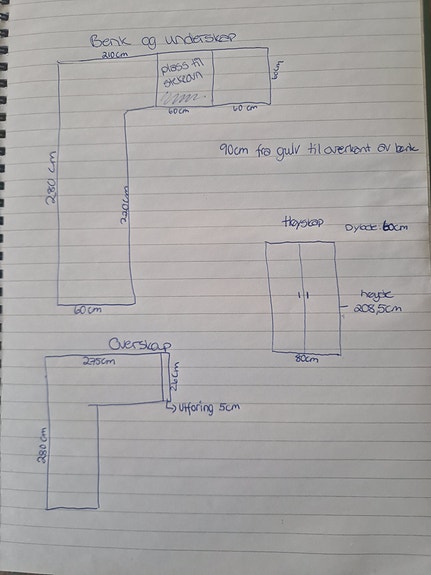 Benk og underskap
210cm
plass til
stekovn
60cm
60cm
60 cm
280 cm
220cm
60cm
90cm fra gulv til overkant av benk
Høyskap
Dybde: 60cm
høyde
208,5cm
80cm
Overskap
275cm
26cm
Utforing 5cm
280cm